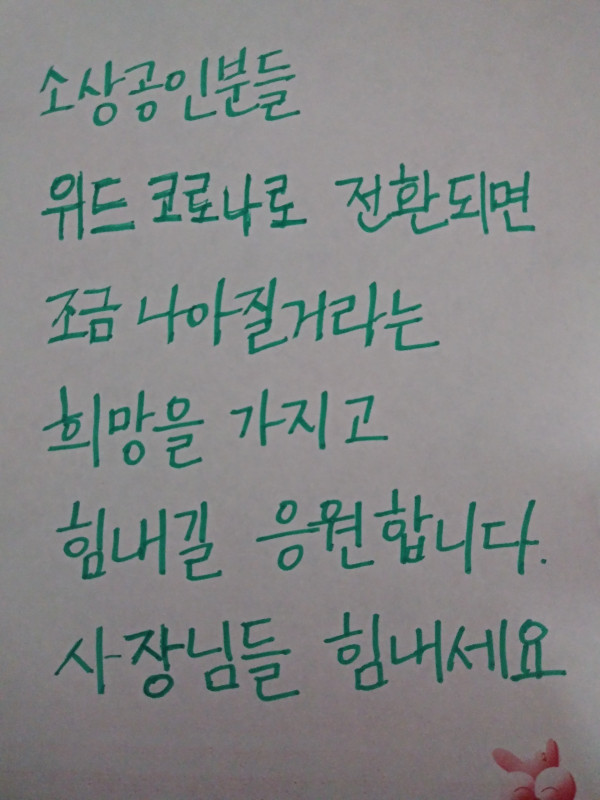 소상공인분들
위드 코로나로 전환되면
조금 나아질거라는
희망을 가지고
힘내길 응원합니다.
사장님들 힘내세요